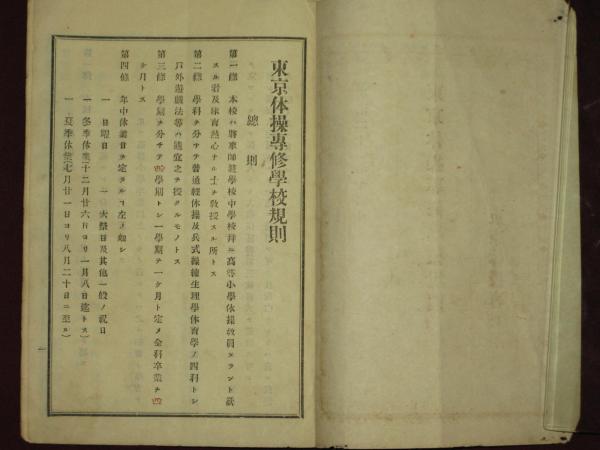 東京体操專修學校規則
總則
第一條 本校ハ將來師範學校中學校并ニ高等小學体操敎員タラント欲
スル者及体育熱心ナル士ヲ敎授スル所トス
第二條 學科ヲ分チテ普通體操及兵式操練生理學体育學ノ四科トシ
戶外遊戲法等ハ隨宜之ヲ授クルモノトス
第三條 學期ヲ分チテ四學期トシ一學期ヲ一ケ月ト定メ全科卒業ヲ四
ケ月トス
第四條 年中休業日ヲ定ムル左ノ如シ
一 日曜日 一 大祭日及其他一般ノ祝日
一 冬季休業(十二月廿六日ヨリ一月八日迄トス)
一 夏季休業(七月廿一日ヨリ八月二十日ニ至ル)
一